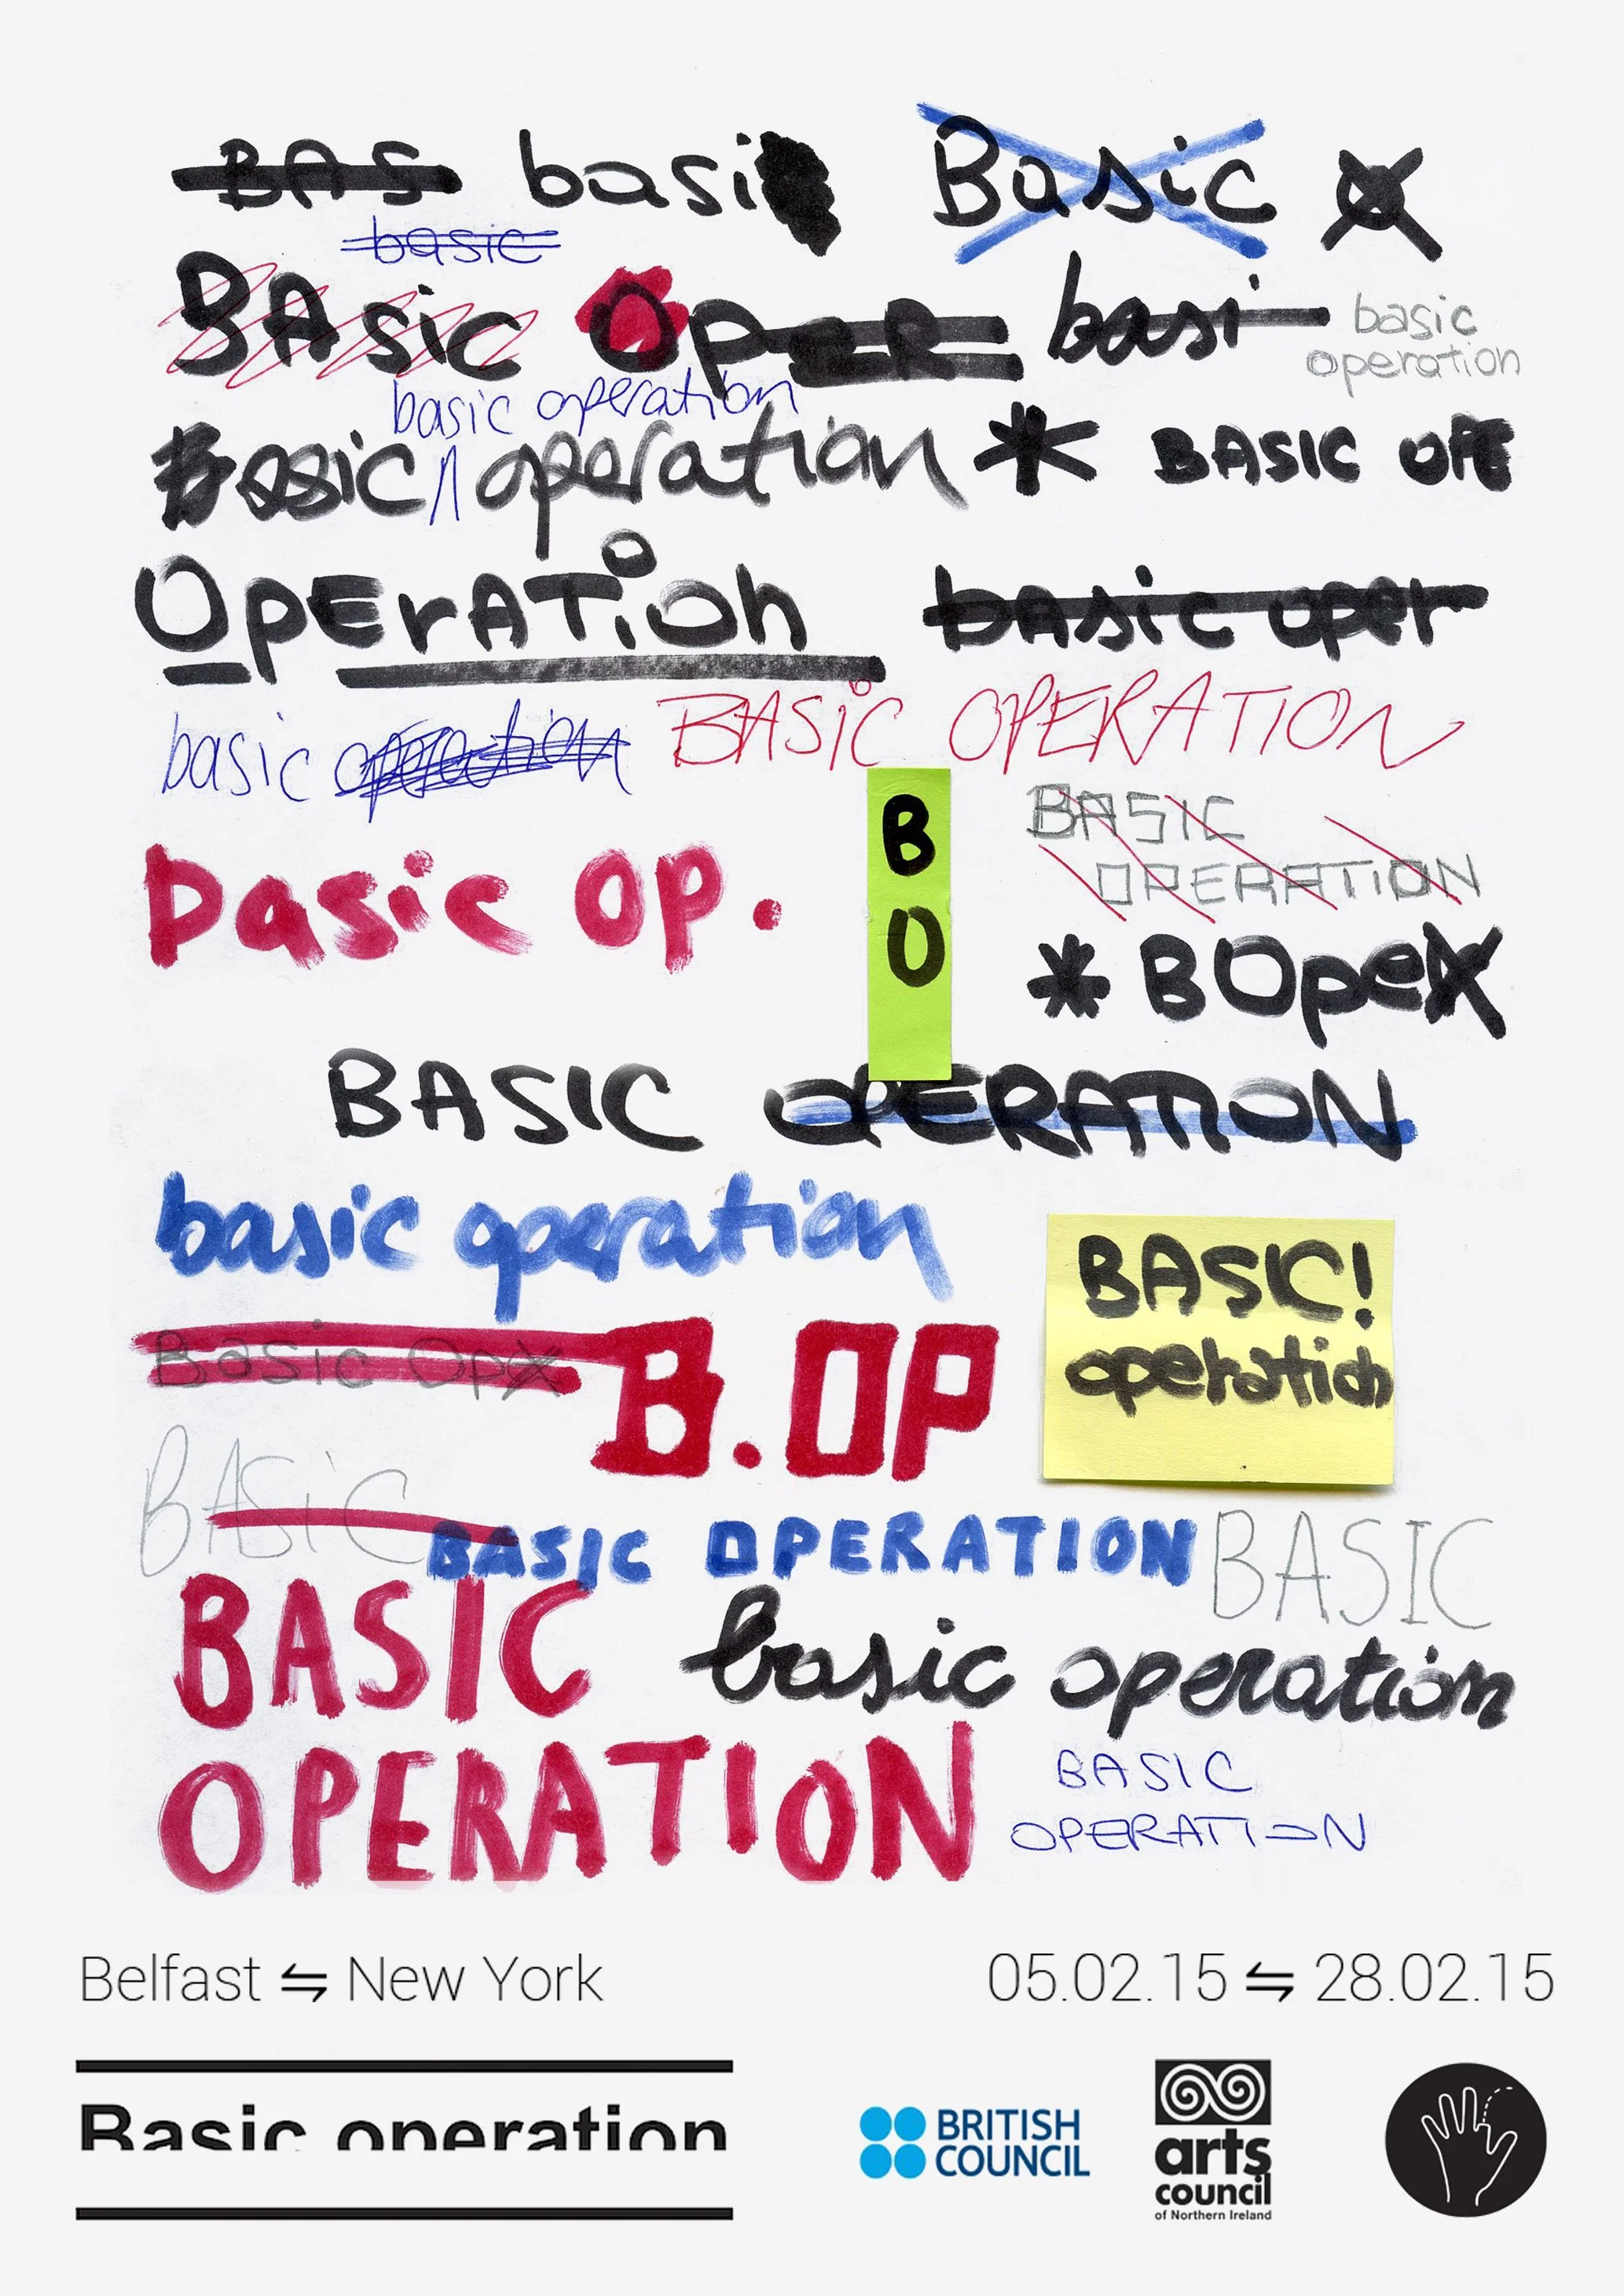 BAS basi Basic
basic
BAsic OpER basi basic
operation
basic operation
basic operation * BASIC OPE
OpErATion basic oper
basic operation BASiC OPERATION
basic op. B
O
BASIC
OPERATION
* BOpe
BASIC OPERATION
basic operation
BASIC!
operation
Basic Op B.OP
BASiC BASIC OPERATION BASIC
BASIC basic operation
OPERATION BASIC
OPERATION
Belfast ⇋ New York 05.02.15 ⇋ 28.02.15
Basic operation
BRITISH
COUNCIL
arts
council
of Northern Ireland